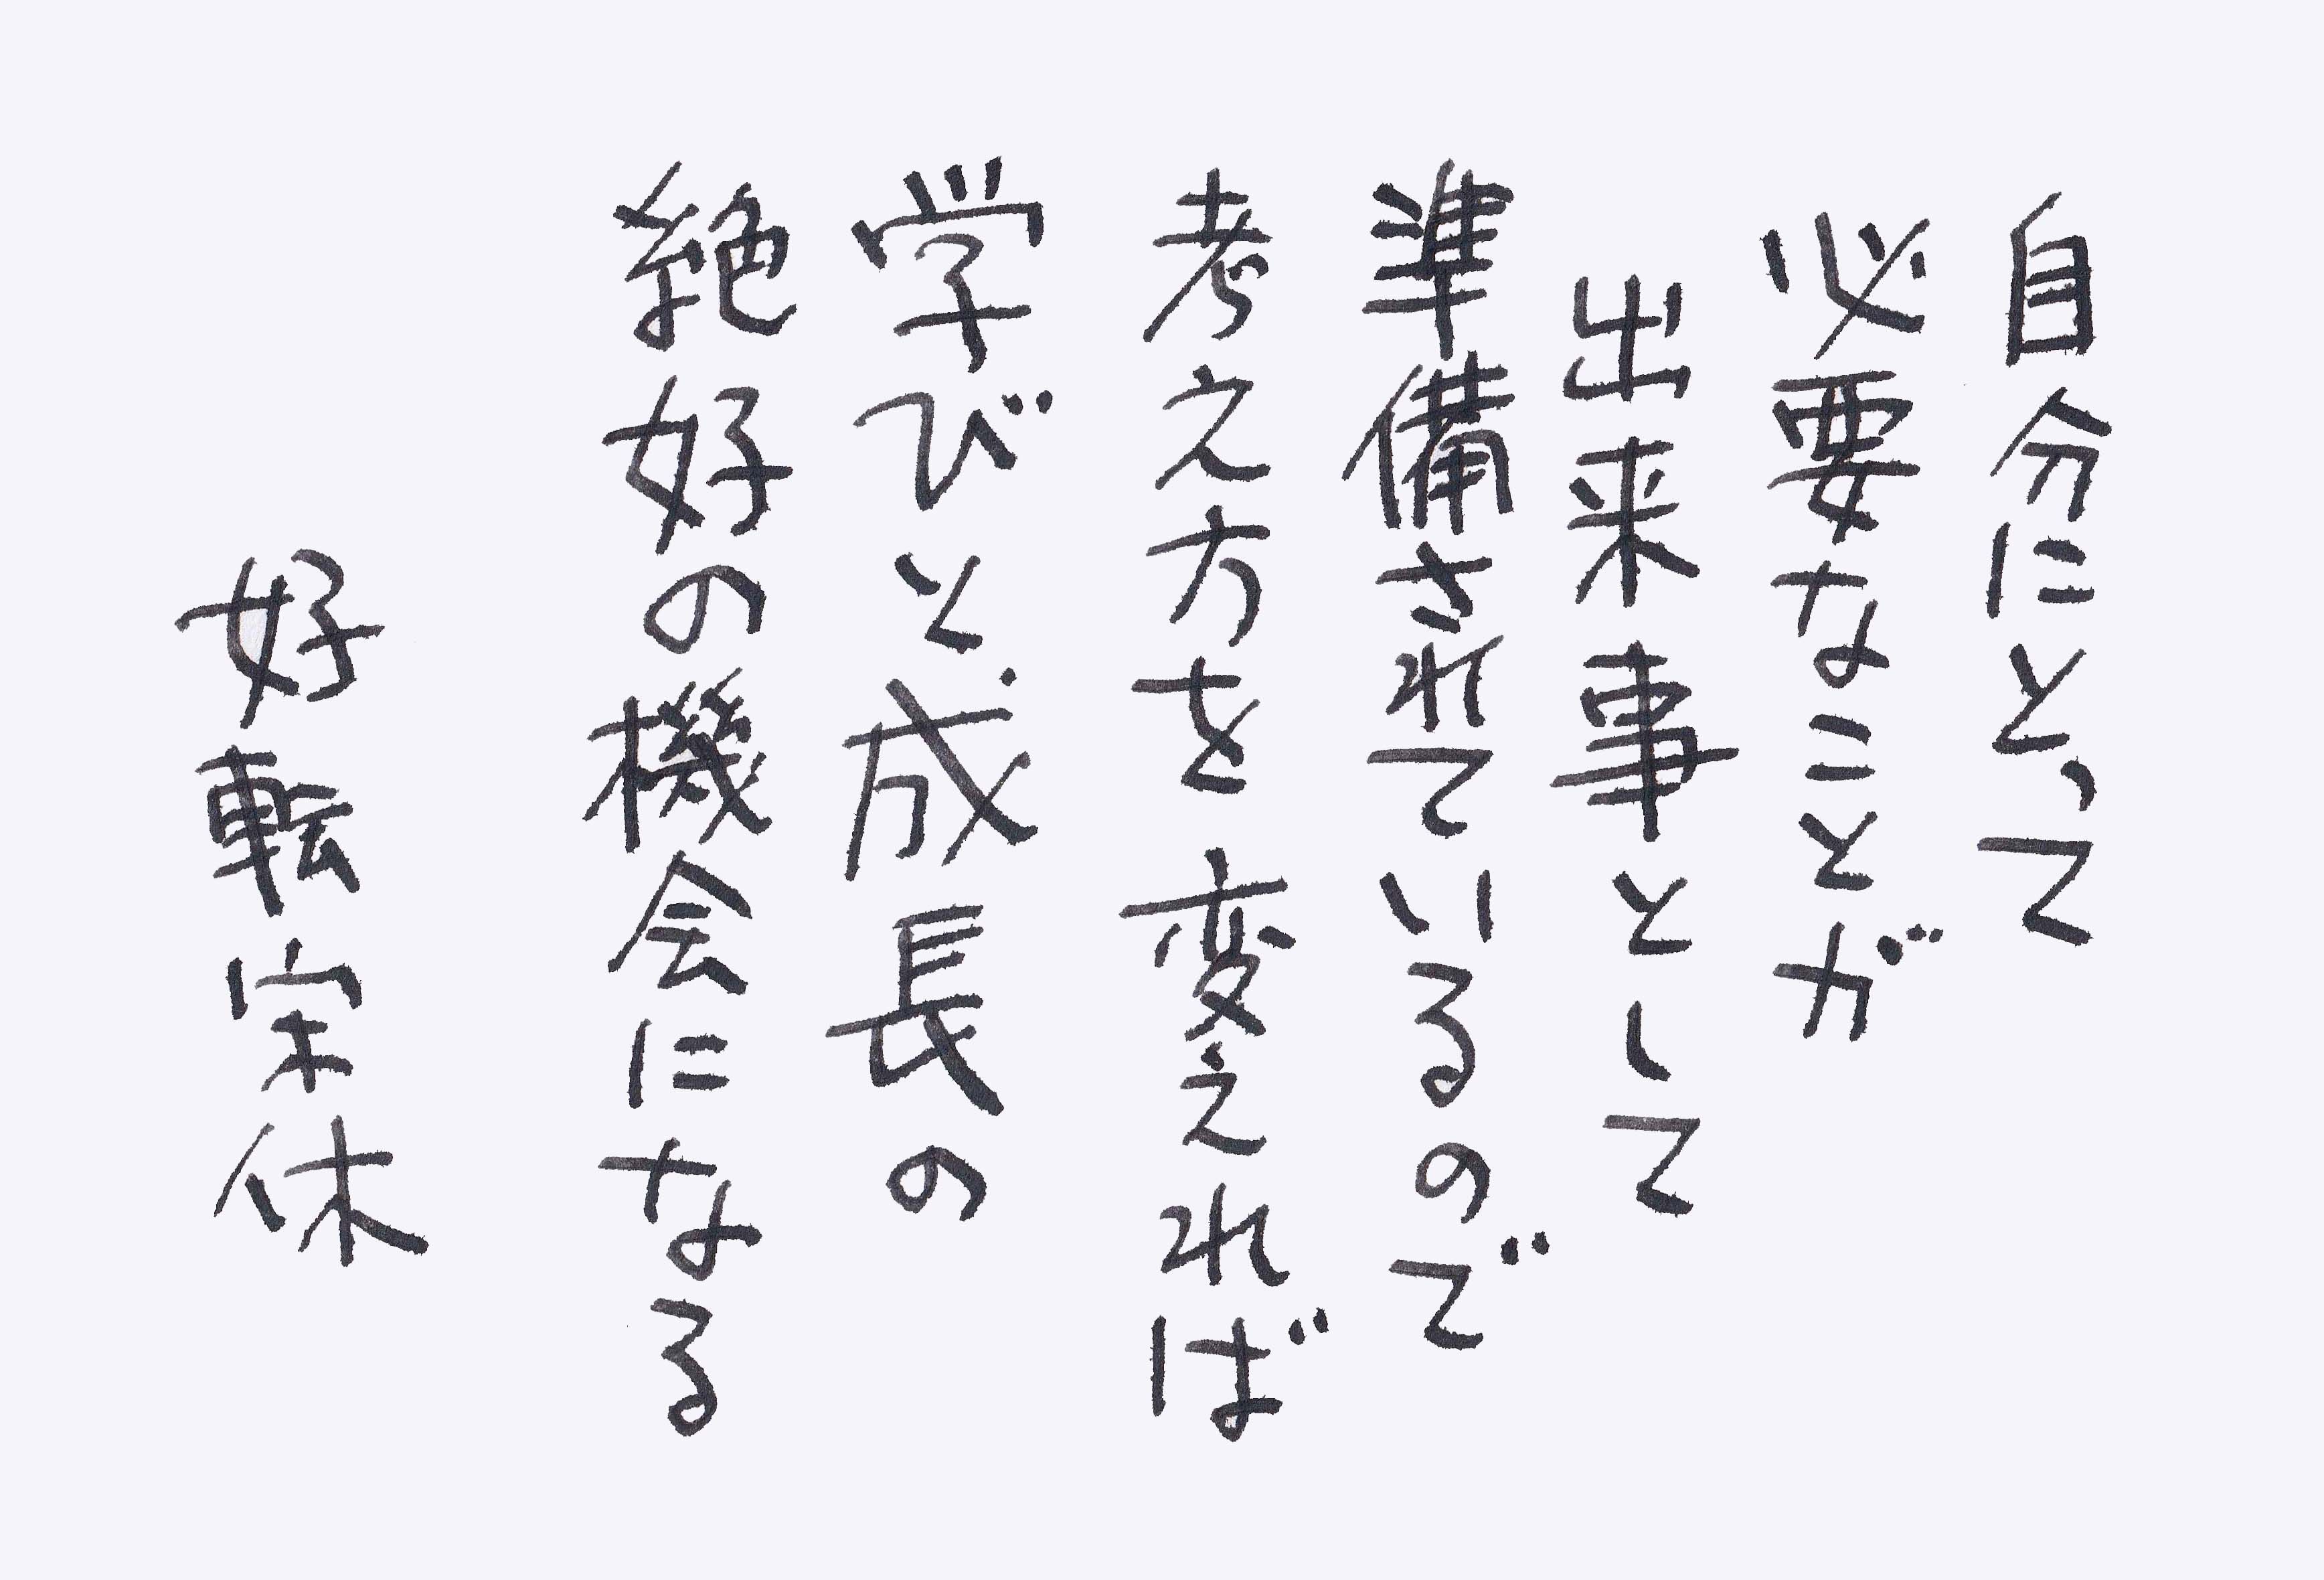 自分にとって
必要なことが
出来事として
準備されているので
考え方を変えれば
学びと成長の
絶好の機会になる
好転宗休